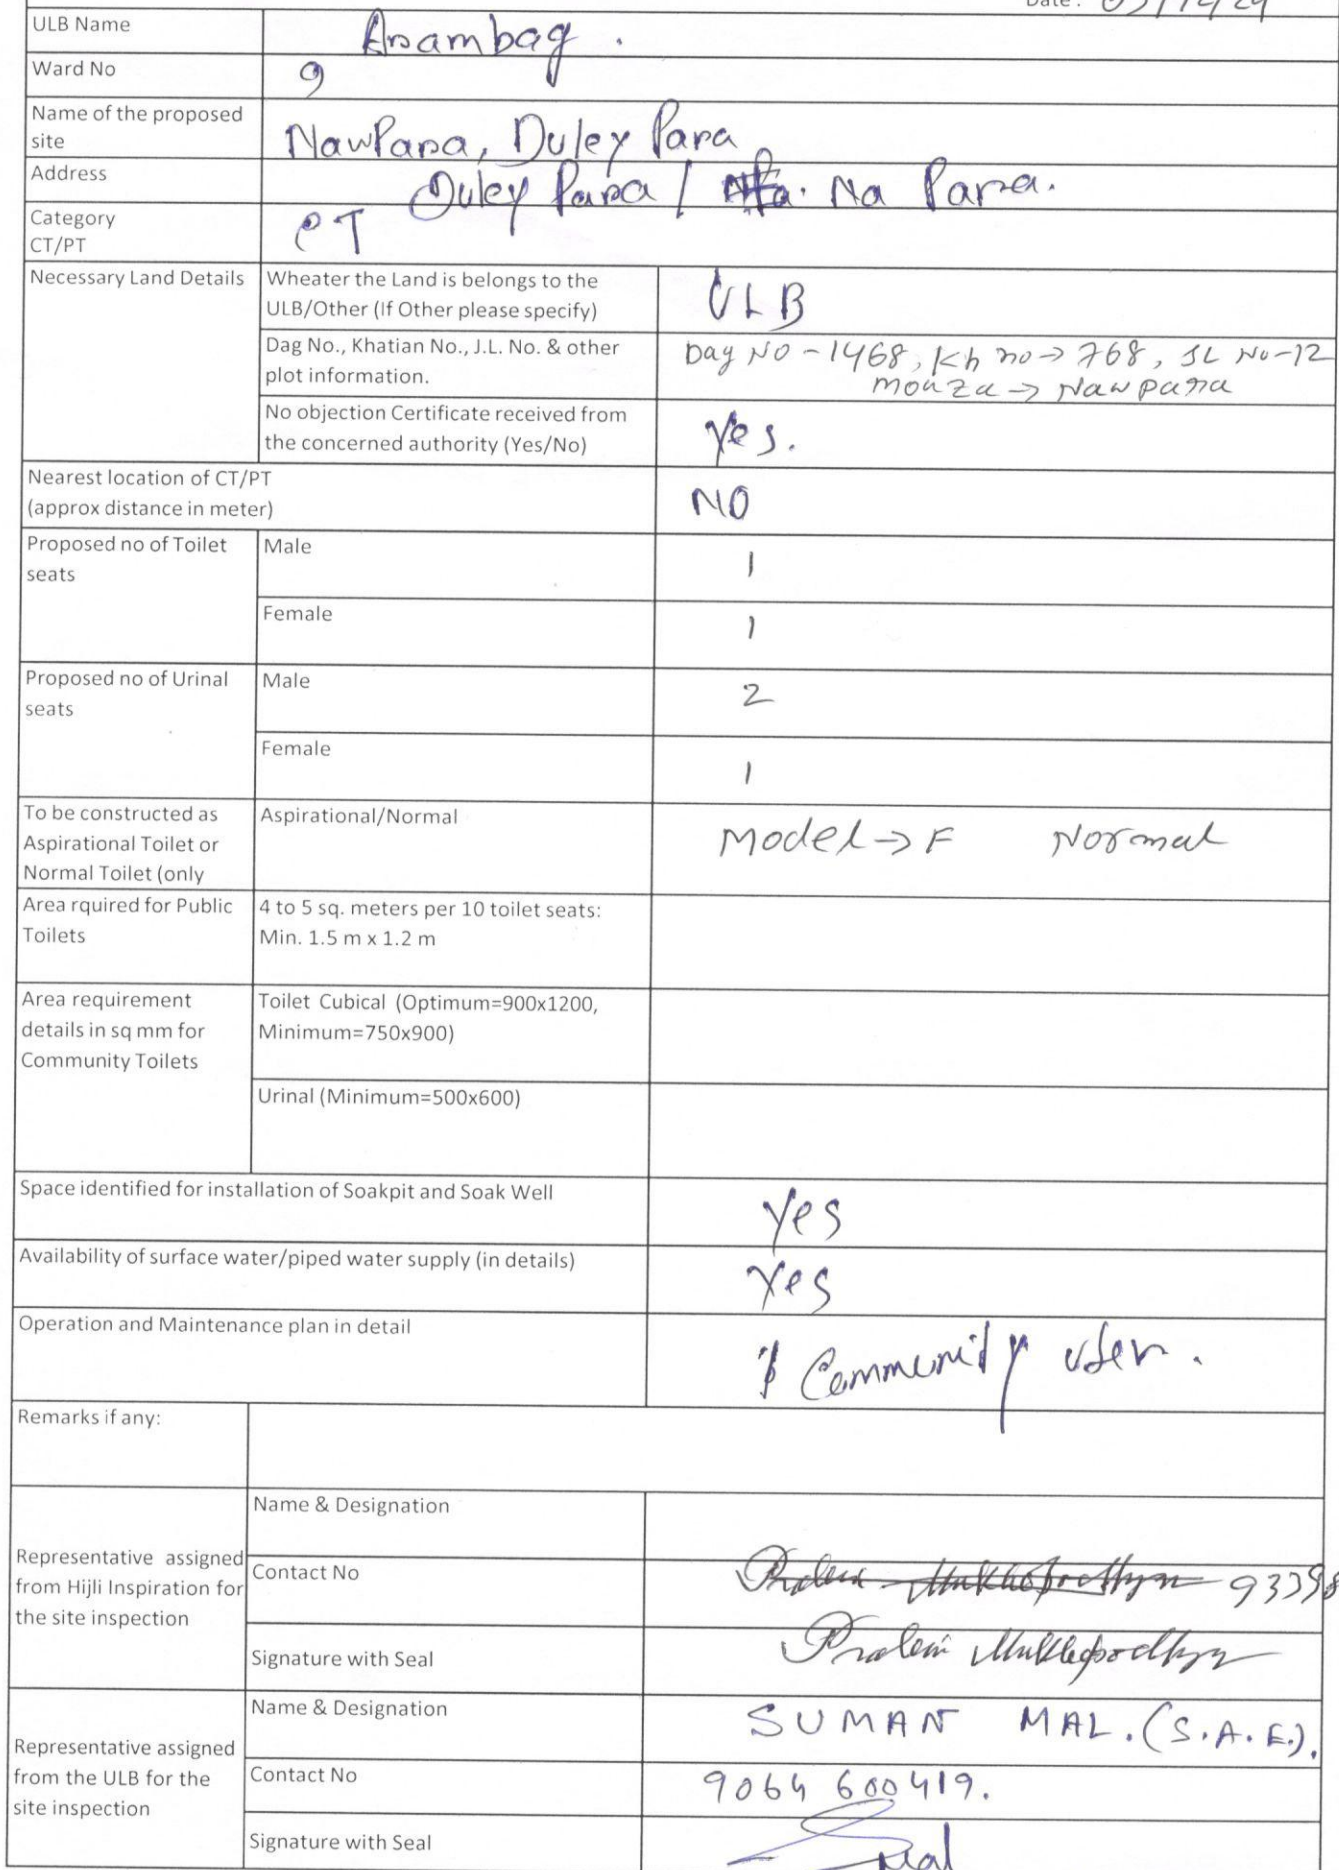 Date:
ULB Name
Arambag.
Ward No
9
Name of the proposed
site
NawPara, Duley Para
Address
Duley Para / Na Para.
Category
CT/PT
CT
Necessary Land Details
Wheater the Land is belongs to the
ULB/Other (If Other please specify)
ULB
Dag No., Khatian No., J.L. No. & other
plot information.
Dag No - 1468, Kh no → 768, JL No-12
mouza → Nawpara
No objection Certificate received from
the concerned authority (Yes/No)
Yes.
Nearest location of CT/PT
(approx distance in meter)
NO
Proposed no of Toilet
seats
Male
1
Female
1
Proposed no of Urinal
seats
Male
2
Female
1
To be constructed as
Aspirational Toilet or
Normal Toilet (only
Aspirational/Normal
Model → F Normal
Area rquired for Public
Toilets
4 to 5 sq. meters per 10 toilet seats:
Min. 1.5 m x 1.2 m
Area requirement
details in sq mm for
Community Toilets
Toilet Cubical (Optimum=900x1200,
Minimum=750x900)
Urinal (Minimum=500x600)
Space identified for installation of Soakpit and Soak Well
Yes
Availability of surface water/piped water supply (in details)
Yes
Operation and Maintenance plan in detail
Community user.
Remarks if any:
Representative assigned
from Hijli Inspiration for
the site inspection
Name & Designation
Contact No
93398
Signature with Seal
Representative assigned
from the ULB for the
site inspection
Name & Designation
SUMAN MAL. (S.A.E.).
Contact No
9064 600419.
Signature with Seal